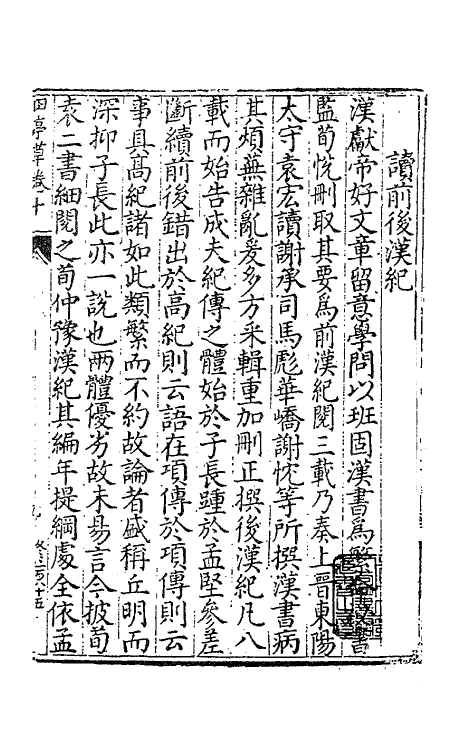 讀前後漢紀
漢獻帝好文章留意學問以班固漢書為繁
監荀悅刪取其要為前漢紀閱三載乃奏上晉東陽
太守袁宏讀謝承司馬彪華嶠謝忱等所撰漢書病
其煩蕪雜亂爰多方采輯重加刪正撰後漢紀凡八
載而始告成夫紀傳之體始於子長踵於孟堅參差
斷續前後錯出於高紀則云語在項傳於項傳則云
事具高紀諸如此類繁而不約故論者盛稱丘明而
深抑子長此亦一說也兩體優劣故未易言今披荀
袁二書細閱之荀仲豫漢紀其編年提綱處全依孟
田亭草卷十